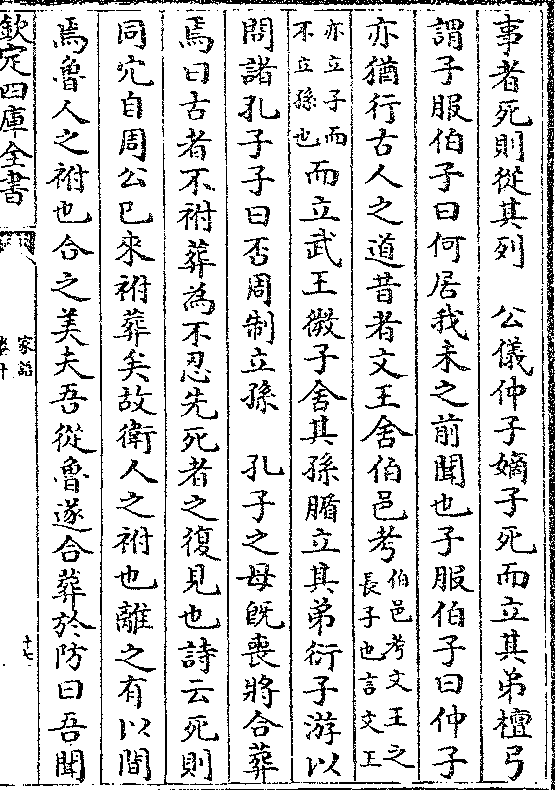 事者死則從其列　公儀仲子嫡子死而立其弟檀弓
謂子服伯子曰何居我未之前聞也子服伯子曰仲子
亦猶行古人之道昔者文王舍伯邑考伯邑考文王之
長子也言文王
亦立子而
不立孫也而立武王微子舍其孫腯立其弟衍子游以
問諸孔子子曰否周制立孫　孔子之母既喪將合葬
焉曰古者不祔葬為不忍先死者之復見也詩云死則
同穴自周公已來祔葬矣故衛人之祔也離之有以間
焉魯人之祔也合之美夫吾從魯遂合葬於防曰吾聞
欽定四庫全書
家語
十七